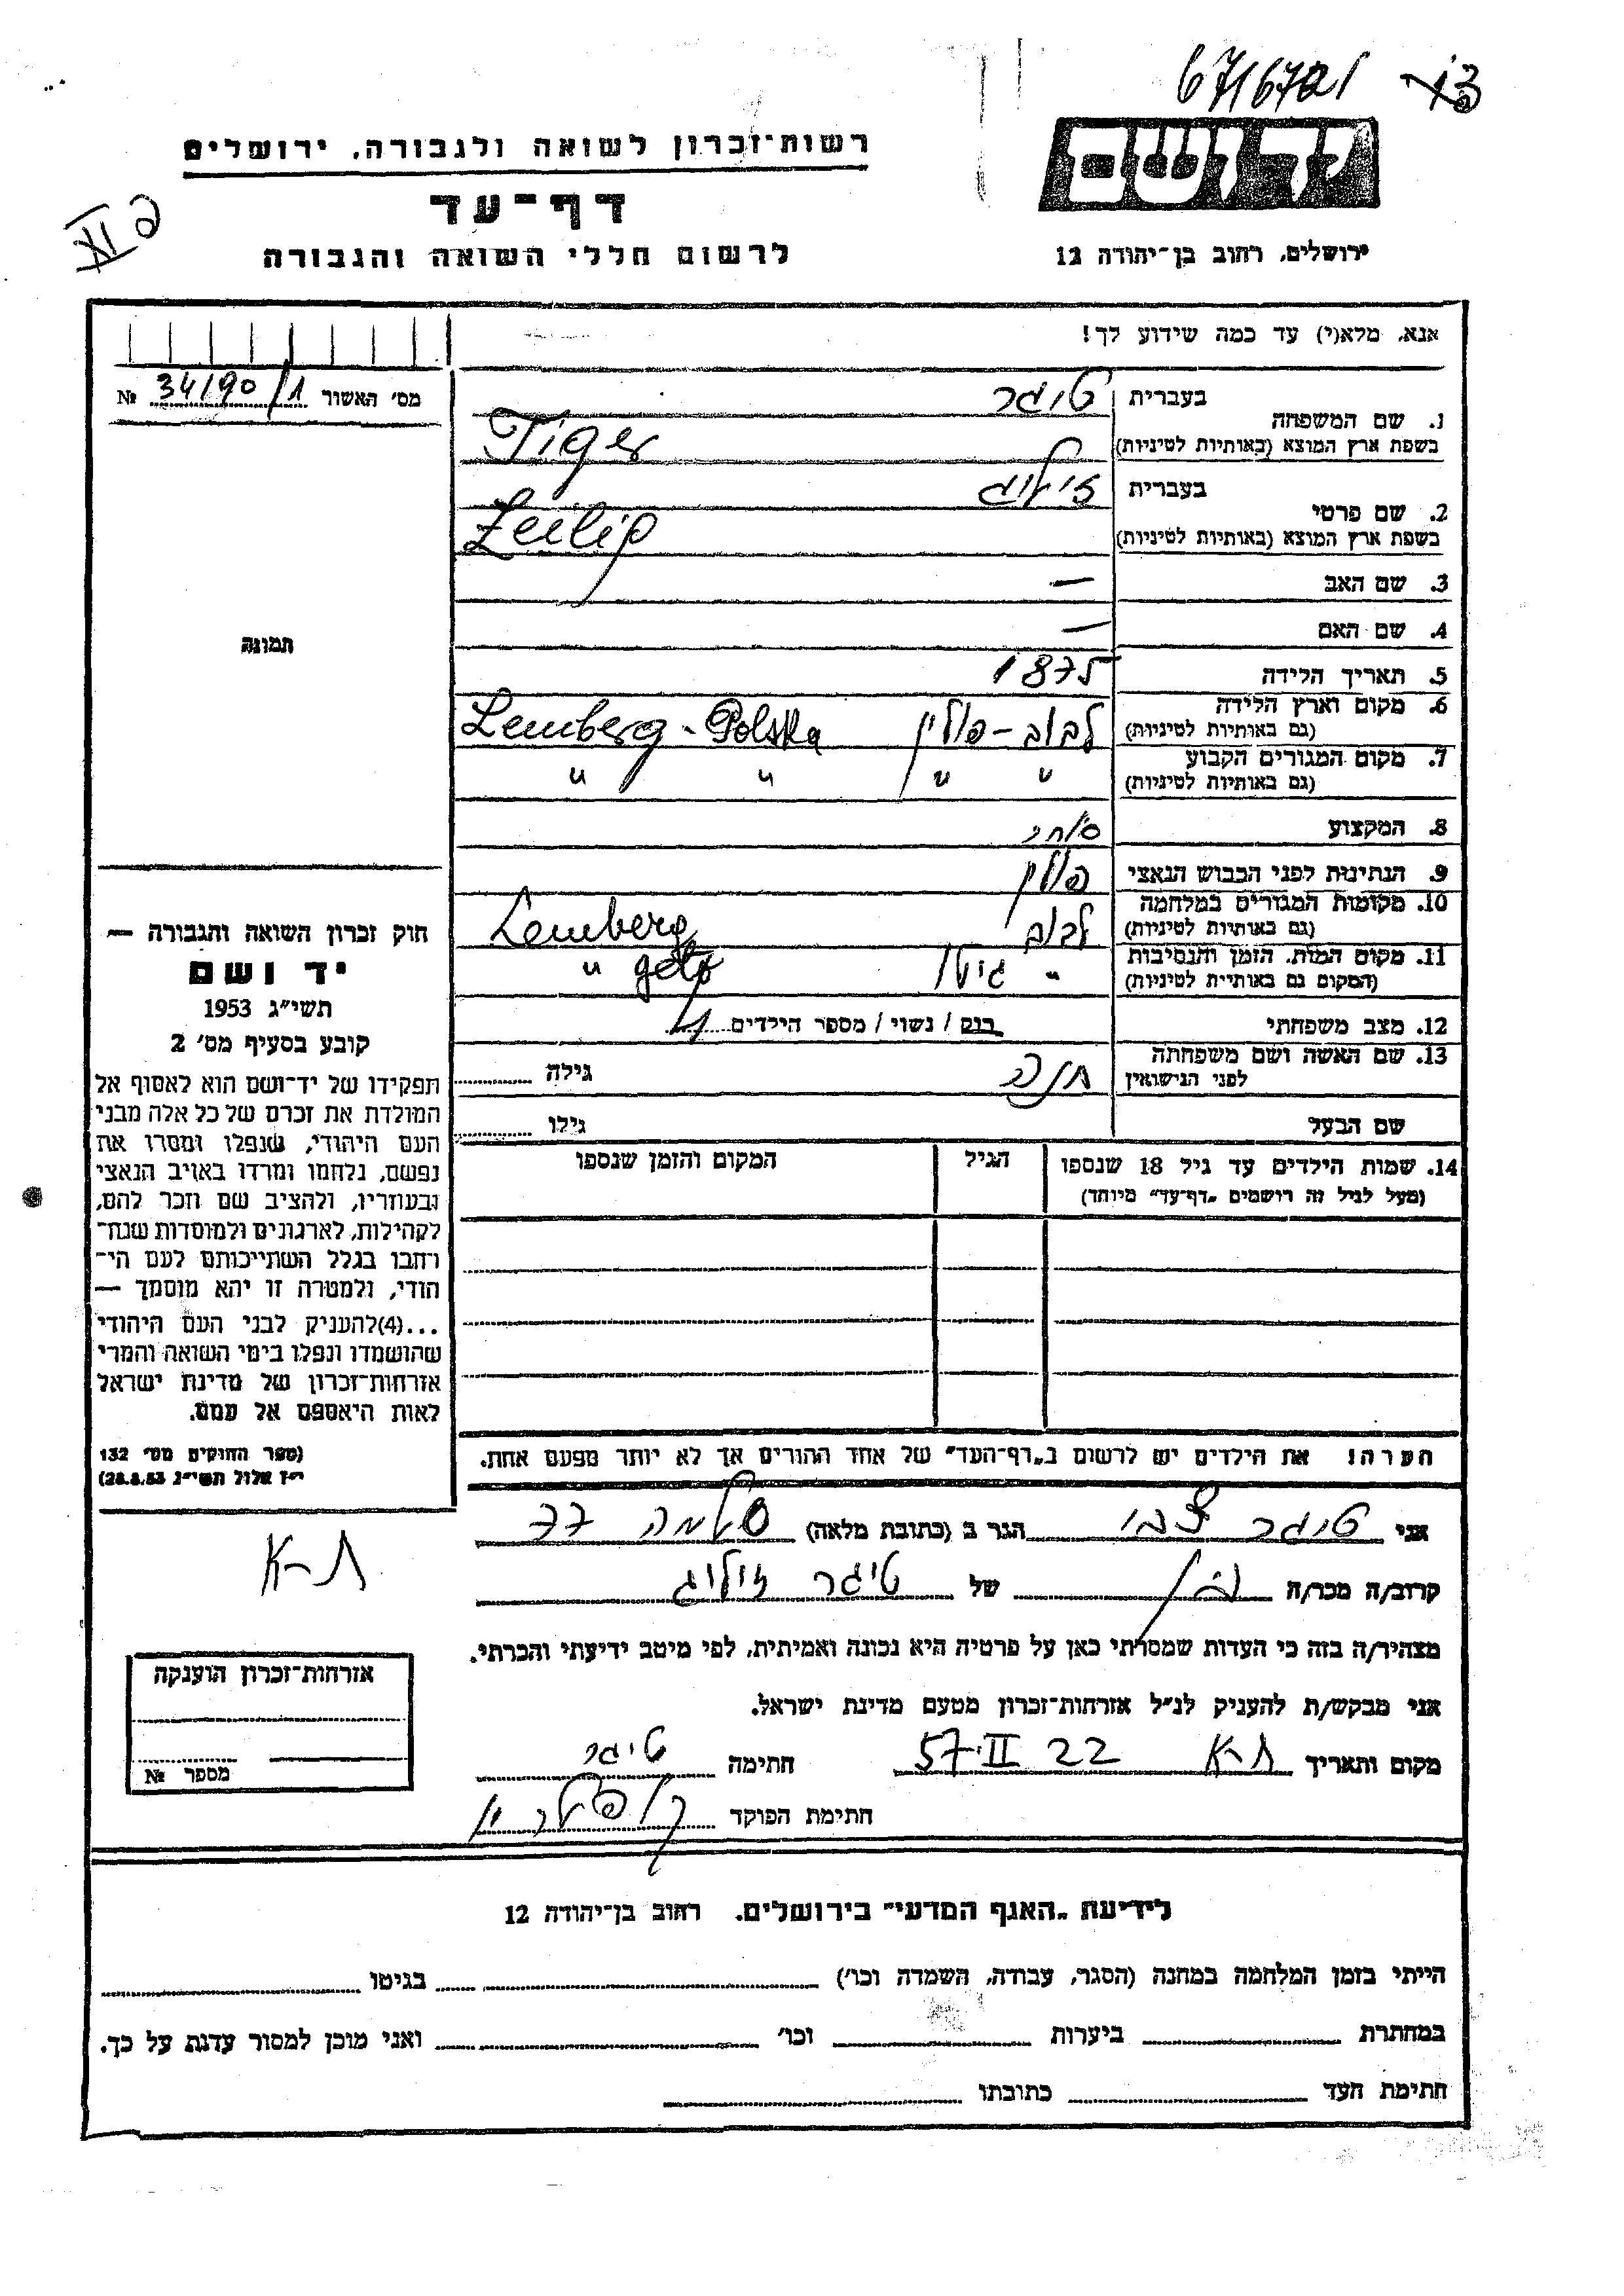 67/6721
רשות־זכרון לשואה ולגבורה, ירושלים
יד ושם
דף־עד
לרשום חללי השואה והגבורה
ירושלים, רחוב בן־יהודה 12
אנא, מלא(י) עד כמה שידוע לך!
מס׳ האשור 34190/1 №
1. שם המשפחה
בעברית טיגר
בשפת ארץ המוצא (באותיות לטיניות) Tiger
2. שם פרטי
בעברית זיליג
בשפת ארץ המוצא (באותיות לטיניות) Zeilig
3. שם האב —
4. שם האם —
תמונה
5. תאריך הלידה 1875
6. מקום וארץ הלידה לבוב - פולין Lemberg - Polska
(גם באותיות לטיניות)
7. מקום המגורים הקבוע " " " "
(גם באותיות לטיניות)
8. המקצוע סוחר
9. הנתינות לפני הכבוש הנאצי פולין
10. מקומות המגורים במלחמה לבוב Lemberg
(גם באותיות לטיניות)
11. מקום המות, הזמן והנסיבות " גיטו " geto
(המקום גם באותיית לטיניות)
12. מצב משפחתי רוק / נשוי / מספר הילדים 4
13. שם האשה ושם משפחתה חנה גילה
לפני הנישואין
שם הבעל גילו
14. שמות הילדים עד גיל 18 שנספו הגיל המקום והזמן שנספו
(מעל לגיל זה רושמים „דף־עד״ מיוחד)
חוק זכרון השואה והגבורה —
יד ושם
תשי״ג 1953
קובע בסעיף מס׳ 2
תפקידו של יד־ושם הוא לאסוף אל
המולדת את זכרם של כל אלה מבני
העם היהודי, שנפלו ומסרו את
נפשם, נלחמו ומרדו באויב הנאצי
ובעוזריו, ולהציב שם וזכר להם,
לקהילות, לארגונים ולמוסדות שנח־
רחבו בגלל השתייכותם לעם הי־
הודי, ולמטרה זו יהא מוסמך —
...(4)להעניק לבני העם היהודי
שהושמדו ונפלו בימי השואה והמרי
אזרחות־זכרון של מדינת ישראל
לאות היאספם אל עמם.
(ספר החוקים מס׳ 132
י״ז אלול תשי״ג 28.8.53)
הערה! את הילדים יש לרשום ב„דף־העד״ של אחד ההורים אך לא יותר מפעם אחת.
אני טיגר צבי הגר ב (כתובת מלאה) סלמה 77
ת-א
קרוב/ה מכר/ה בן של טיגר זיליג
מצהיר/ה בזה כי העדות שמסרתי כאן על פרטיה היא נכונה ואמיתית, לפי מיטב ידיעתי והכרתי.
אני מבקש/ת להעניק לנ״ל אזרחות־זכרון מטעם מדינת ישראל.
אזרחות־זכרון הוענקה
מספר №
מקום ותאריך ת-א 22 II 57 חתימה טיגר
חתימת הפוקד
לידיעת „האגף המדעי״ בירושלים, רחוב בן־יהודה 12
הייתי בזמן המלחמה במחנה (הסגר, עבודה, השמדה וכו׳) בגיטו
במחתרת ביערות וכו׳ ואני מוכן למסור עדות על כך.
חתימת העד כתובתו